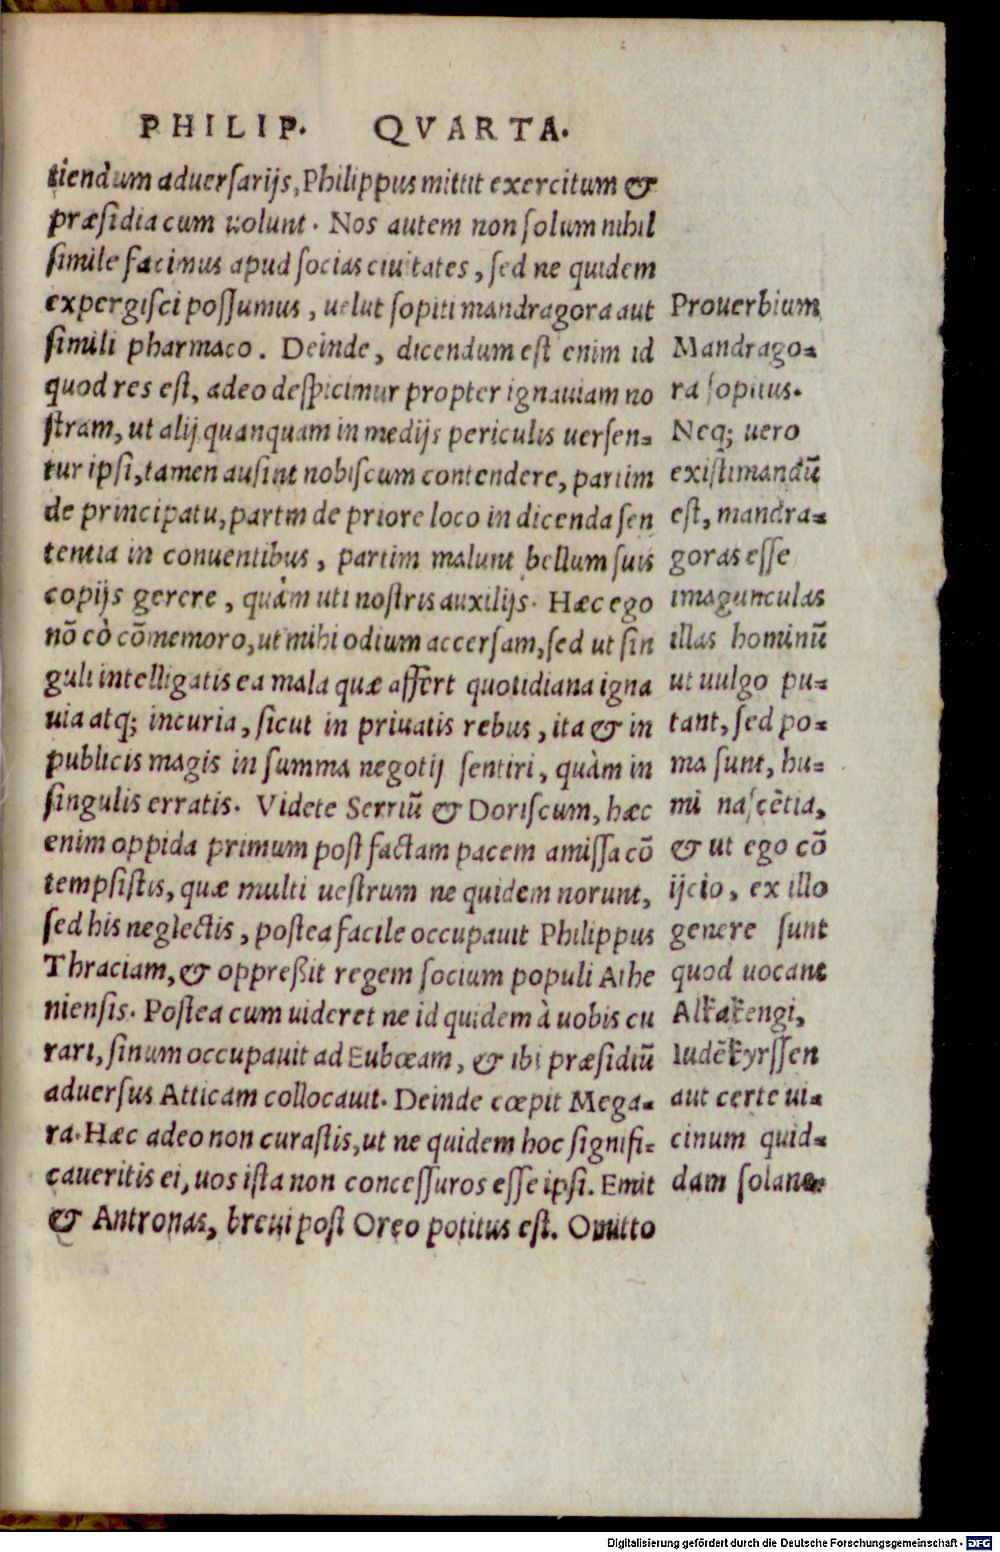 PHILIP. QVARTA.
tiendum aduersarijs, Philippus mittit exercitum &
præsidia cum uolunt. Nos autem non solum nihil
simile facimus apud socias ciuitates, sed ne quidem
expergisci possumus, uelut sopiti mandragora aut
simili pharmaco. Deinde, dicendum est enim id
quod res est, adeo despicimur propter ignauiam no
stram, ut alij quanquam in medijs periculis uersen=
tur ipsi, tamen ausint nobiscum contendere, partim
de principatu, partm de priore loco in dicenda sen
tentia in conuentibus, partim malunt bellum suis
copijs gerere, quàm uti nostris auxilijs. Hæc ego
nō cò cōmemoro, ut mihi odium accersam, sed ut sin
guli intelligatis ea mala quæ affert quotidiana igna
uia atq; incuria, sicut in priuatis rebus, ita & in
publicis magis in summa negotij sentiri, quàm in
singulis erratis. Videte Serriū & Doriscum, hæc
enim oppida primum post factam pacem amissa cō
tempsistis, quæ multi uestrum ne quidem norunt,
sed his neglectis, postea facile occupauit Philippus
Thraciam, & oppreßit regem socium populi Athe
niensis. Postea cum uideret ne id quidem à uobis cu
rari, sinum occupauit ad Eubœam, & ibi præsidiū
aduersus Atticam collocauit. Deinde cœpit Mega=
ra. Hæc adeo non curastis, ut ne quidem hoc signifi=
caueritis ei, uos ista non concessuros esse ipsi. Emit
& Antronas, breui post Oreo potitus est. Omitto
Prouerbium
Mandrago=
ra sopitus.
Neq; uero
existimandū
est, mandra=
goras esse
imagunculas
illas hominū
ut uulgo pu=
tant, sed po=
ma sunt, hu=
mi nascētia,
& ut ego cō
ijcio, ex illo
genere sunt
quod uocant
Alkakengi,
Iudēkyrssen
aut certe ui=
cinum quid=
dam solano.
Digitalisierung gefördert durch die Deutsche Forschungsgemeinschaft - DFG